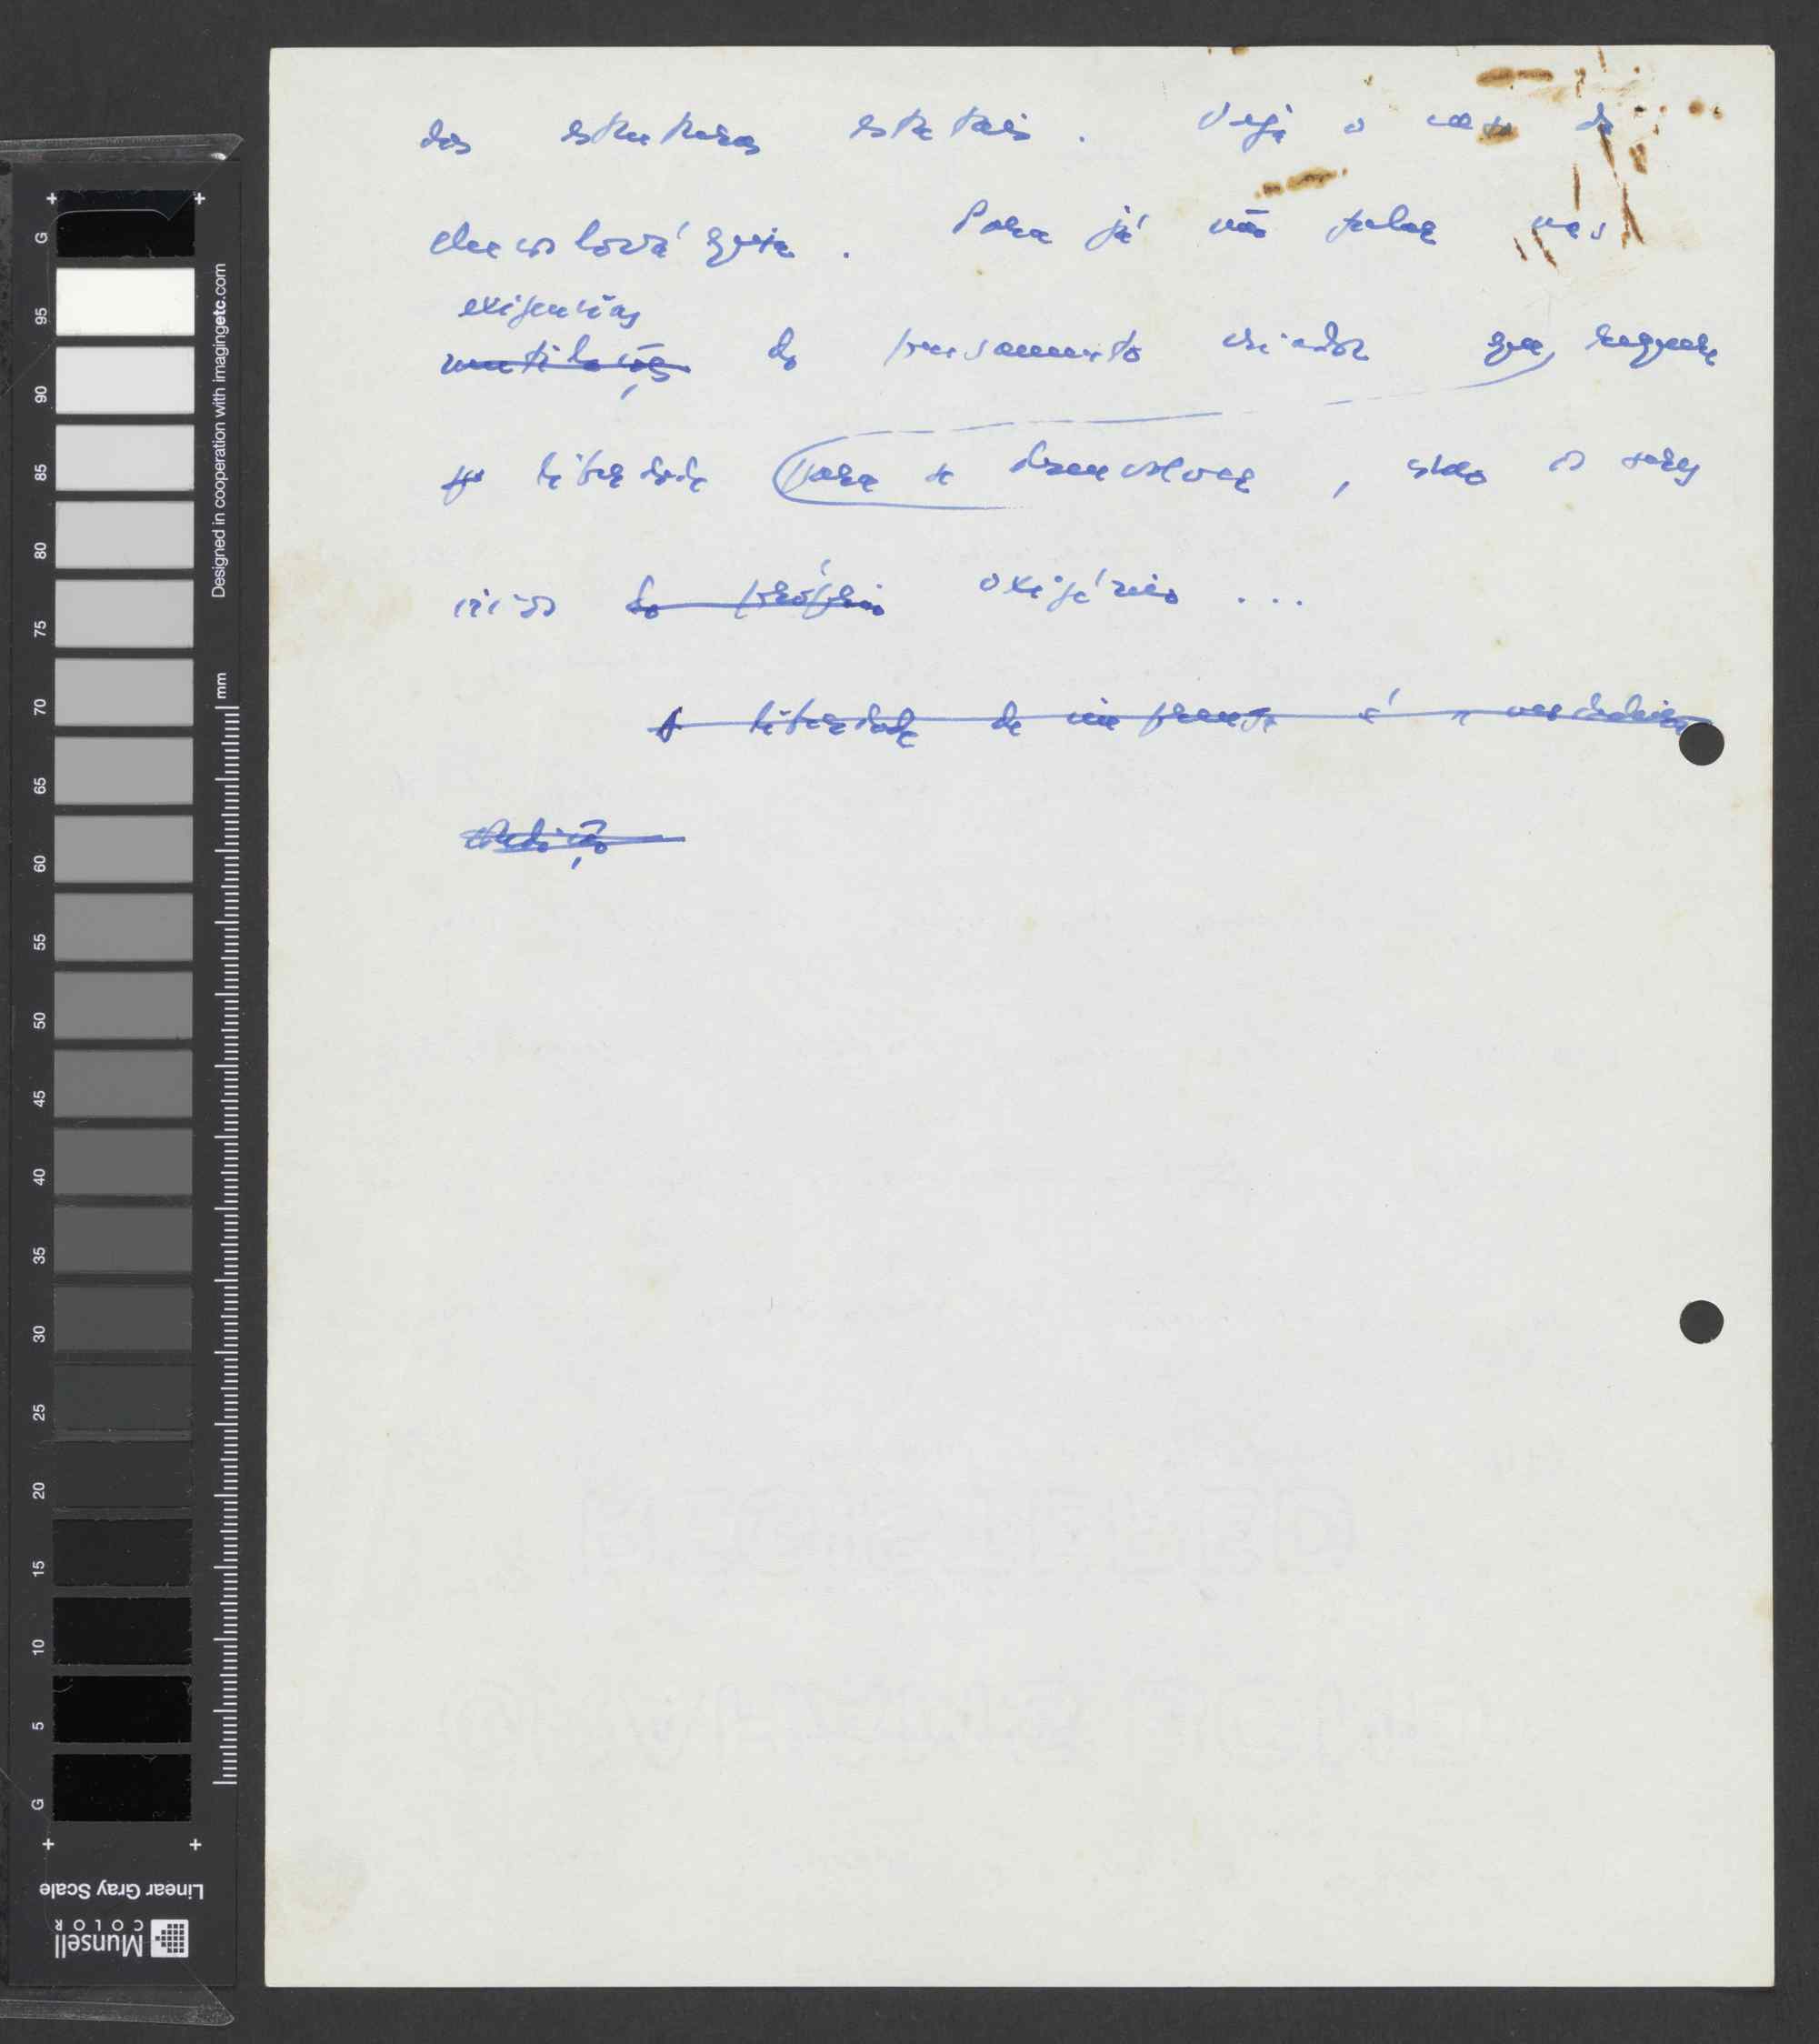 das estruturas estatais. Veja o caso da
checoslováquia. Para já não falar nas
exigências
mutilações do pensamento criador que, requer
liberdade para se desenvolver, como o seres
vivo do próprio oxigénio ...
A liberdade de imprensa é a verdadeira
G 95 90 85 80 75 70 65 60 55 50 45 40 35 30 25 20 15 10 5 G
Designed in cooperation with imagingetc.com
mm
Linear Gray Scale
Munsell
COLOR